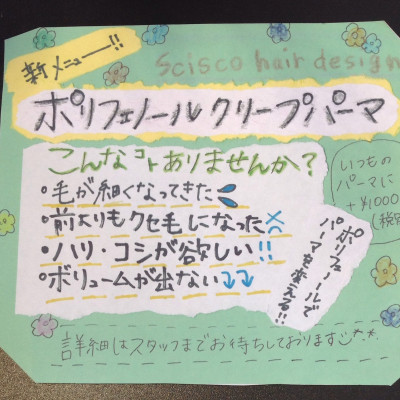 新メニュー!!
Scisco hair design
ポリフェノールクリープパーマ
こんなコトありませんか?
・毛が細くなってきた
・前よりもクセ毛になった
・ハリ・コシが欲しい!!
・ボリュームが出ない↴↴
いつもの
パーマに
+¥1000
(税別
ポリフェノールで
パーマも変える!!
詳細はスタッフまでお待ちしております